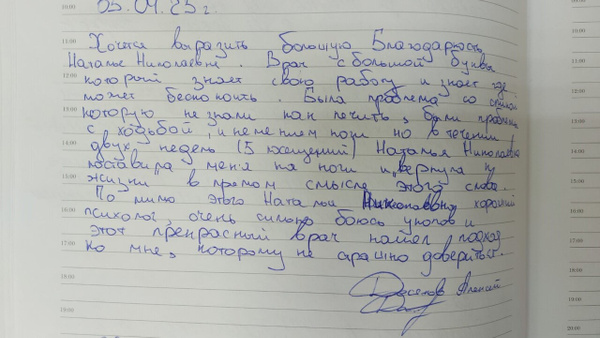 03.04.25г.
Хочется выразить большую Благодарность
Наталье Николаевне. Врач с большой буквы
который знает свою работу и знает где
может беспокоить. Была проблема со спиной
которую не знали как лечить, были проблемы
с ходьбой, и немением ноги но в течении
двух недель (5 посещений) Наталья Николаевна
поставила меня на ноги и вернула к
жизни в прямом смысле этого слова.
По мимо этого Наталья Николаевна хороший
психолог, очень сильно боюсь уколов и
этот прекрасный врач нашел подход
ко мне, которому не страшно довериться.
Алексей
10:00
11:00
12:00
13:00
14:00
15:00
16:00
17:00
18:00
19:00
18:00
19:00
20:00